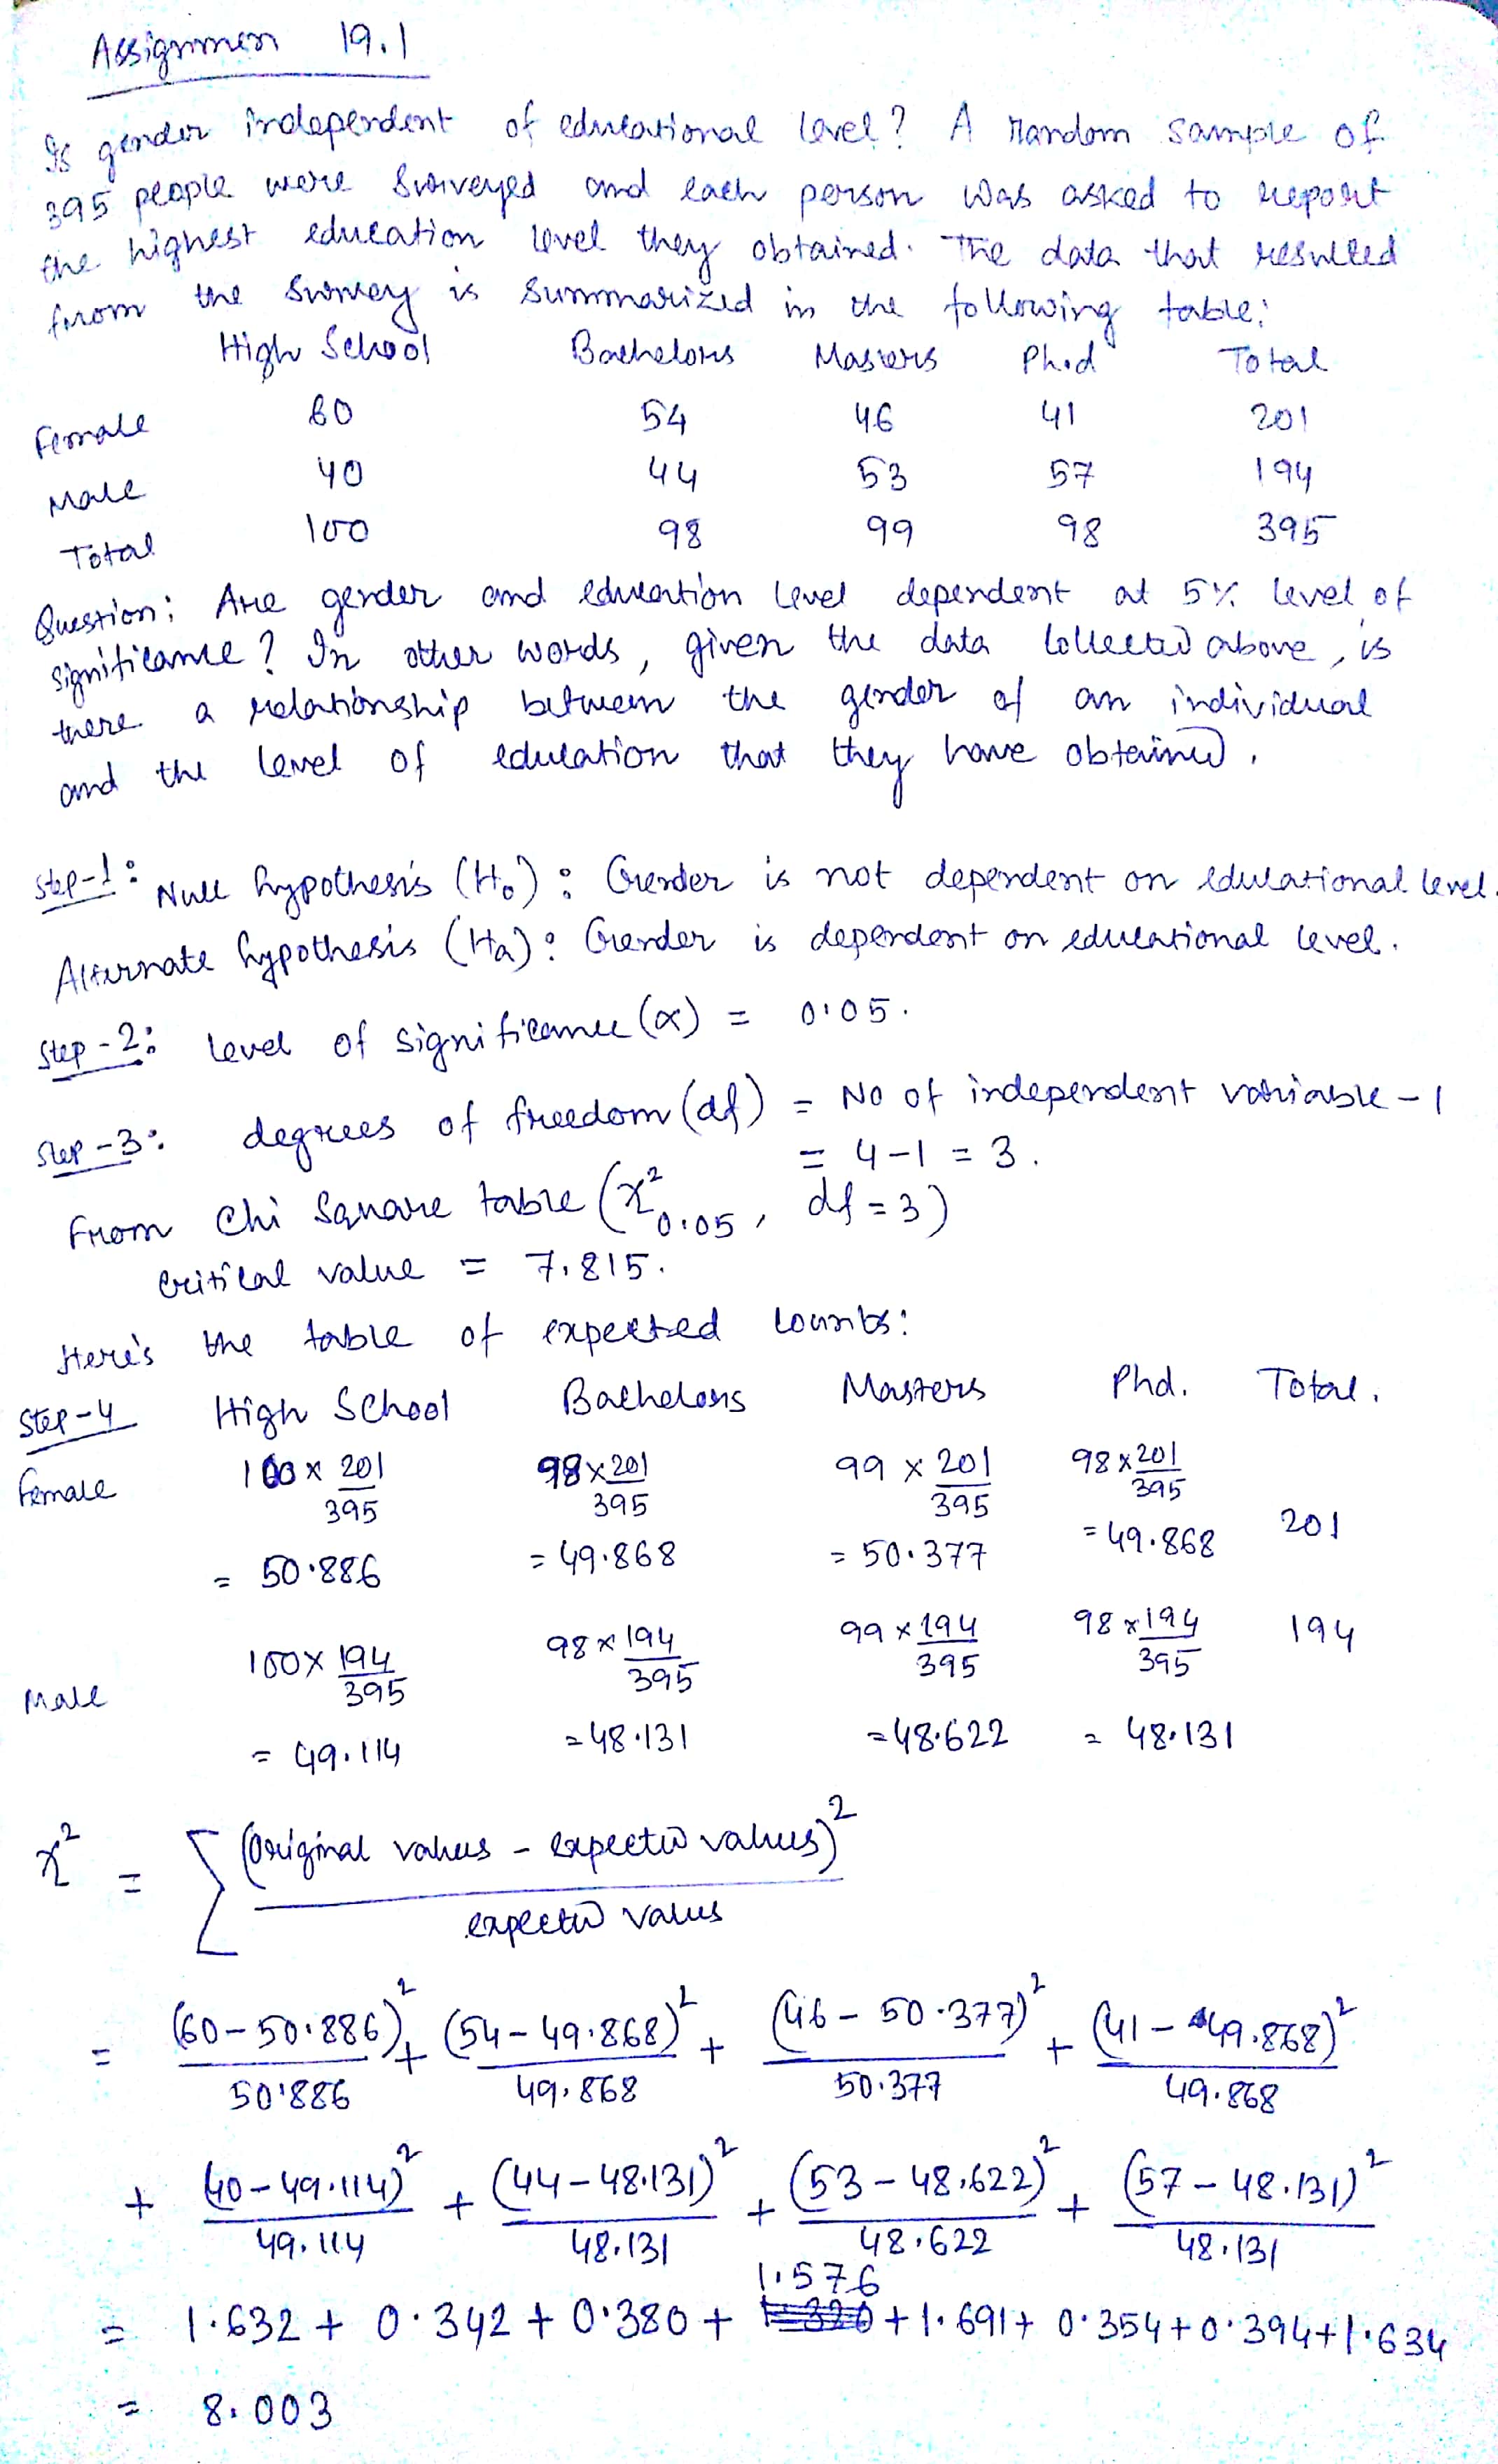 Assignmen 19.1
Is gender independent of educational level? A random sample of
395 people were surveyed and each person was asked to report
the highest education level they obtained. The data that resulted
from the survey is summarized in the following table:
High School Bachelors Masters Ph.d Total
Female 60 54 46 41 201
Male 40 44 53 57 194
Total 100 98 99 98 395
Question: Are gender and education level dependent at 5% level of
significance? In other words, given the data collected above, is
there a relationship between the gender of an individual
and the level of education that they have obtained.
Step-1: Null hypothesis (H₀): Gender is not dependent on educational level.
Alternate hypothesis (Ha): Gender is dependent on educational level.
Step-2: level of significance (α) = 0.05.
Step-3: degrees of freedom (df) = No of independent variable - 1
= 4-1 = 3.
From Chi Square table (χ²0.05, df = 3)
critical value = 7.815.
Here's the table of expected counts:
Step-4 High School Bachelors Masters Phd. Total.
Female 100 x 201/395 98 x 201/395 99 x 201/395 98 x 201/395
= 50.886 = 49.868 = 50.377 = 49.868 201
Male 100 x 194/395 98 x 194/395 99 x 194/395 98 x 194/395 194
= 49.114 = 48.131 = 48.622 = 48.131
χ² = Σ (Original values - expected values)² / expected values
= (60-50.886)²/50.886 + (54-49.868)²/49.868 + (46-50.377)²/50.377 + (41-49.868)²/49.868
+ (40-49.114)²/49.114 + (44-48.131)²/48.131 + (53-48.622)²/48.622 + (57-48.131)²/48.131
= 1.632 + 0.342 + 0.380 + 1.576 + 1.691 + 0.354 + 0.394 + 1.634
= 8.003